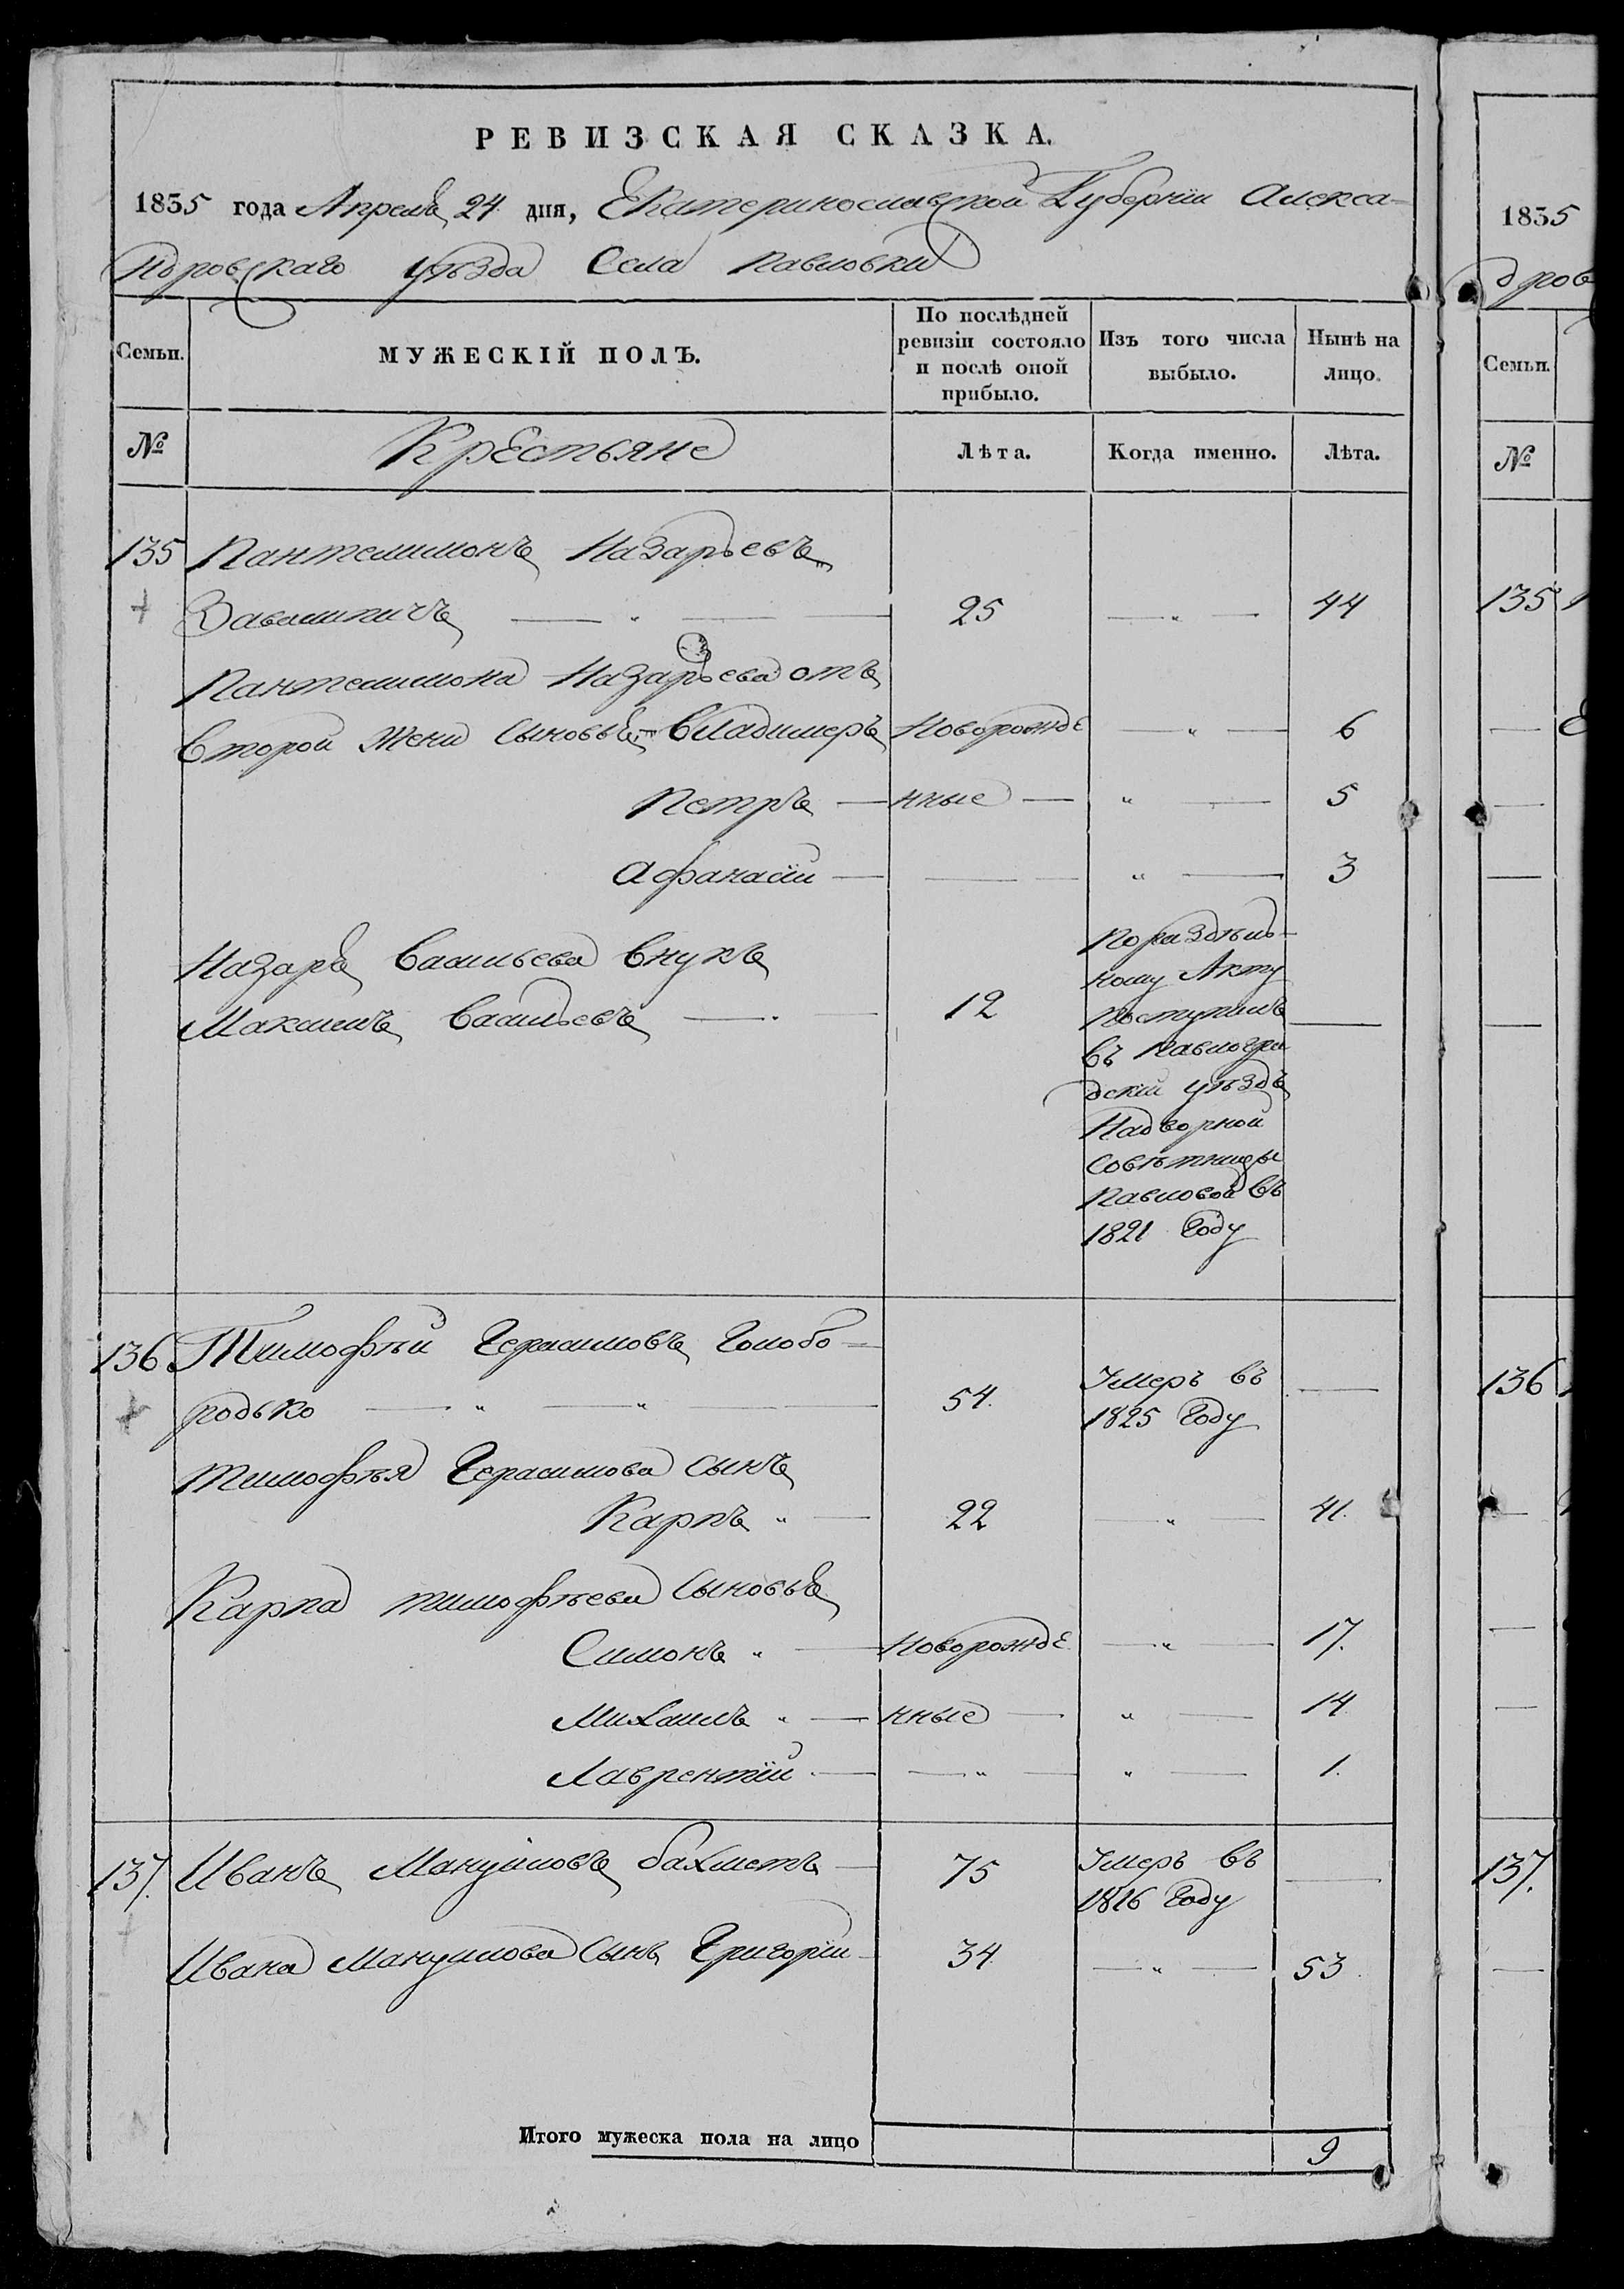 РЕВИЗСКАЯ СКАЗКА.
1835 года Апреля 24 дня, Екатеринославской Губернии Алекса-
ндровскаго уѣзда Села Павловки
Семьи.
МУЖЕСКІЙ ПОЛЪ.
По послѣдней ревизіи состояло и послѣ оной прибыло.
Изъ того числа выбыло.
Нынѣ на лицо.
№ Крестьяне Лѣта. Когда именно. Лѣта.
135 Пантелимонъ Назарьевъ
25 44
Пантелимона Назарьева отъ
второй жени сыновья Владимеръ Новорожде 6
Петръ нные 5
Афанасій 3
Назара Васильева внукъ
Максимъ Васильевъ 12
По раздѣль-
ному Акту
поступилъ
въ Павлогра
дскій уѣздъ
Надворной
Совѣтницы
Павловой въ
1821 году
136 Тимофѣй Герасимовъ Голобо-
родько 54. Умеръ въ
1825 году
Тимофѣя Герасимова сынъ
Карпъ 22 41.
Карпа Тимофѣева сыновья
Симонъ Новорожде 17.
Михаилъ нные 14
Лаврентій 1.
137. Иванъ Мануиловъ Бахметъ 75 Умеръ въ
1816 году
Ивана Мануилова сынъ Григорій 34 53.
Итого мужеска пола на лицо 9
1835
дров
Семьи.
№
135
136
137.